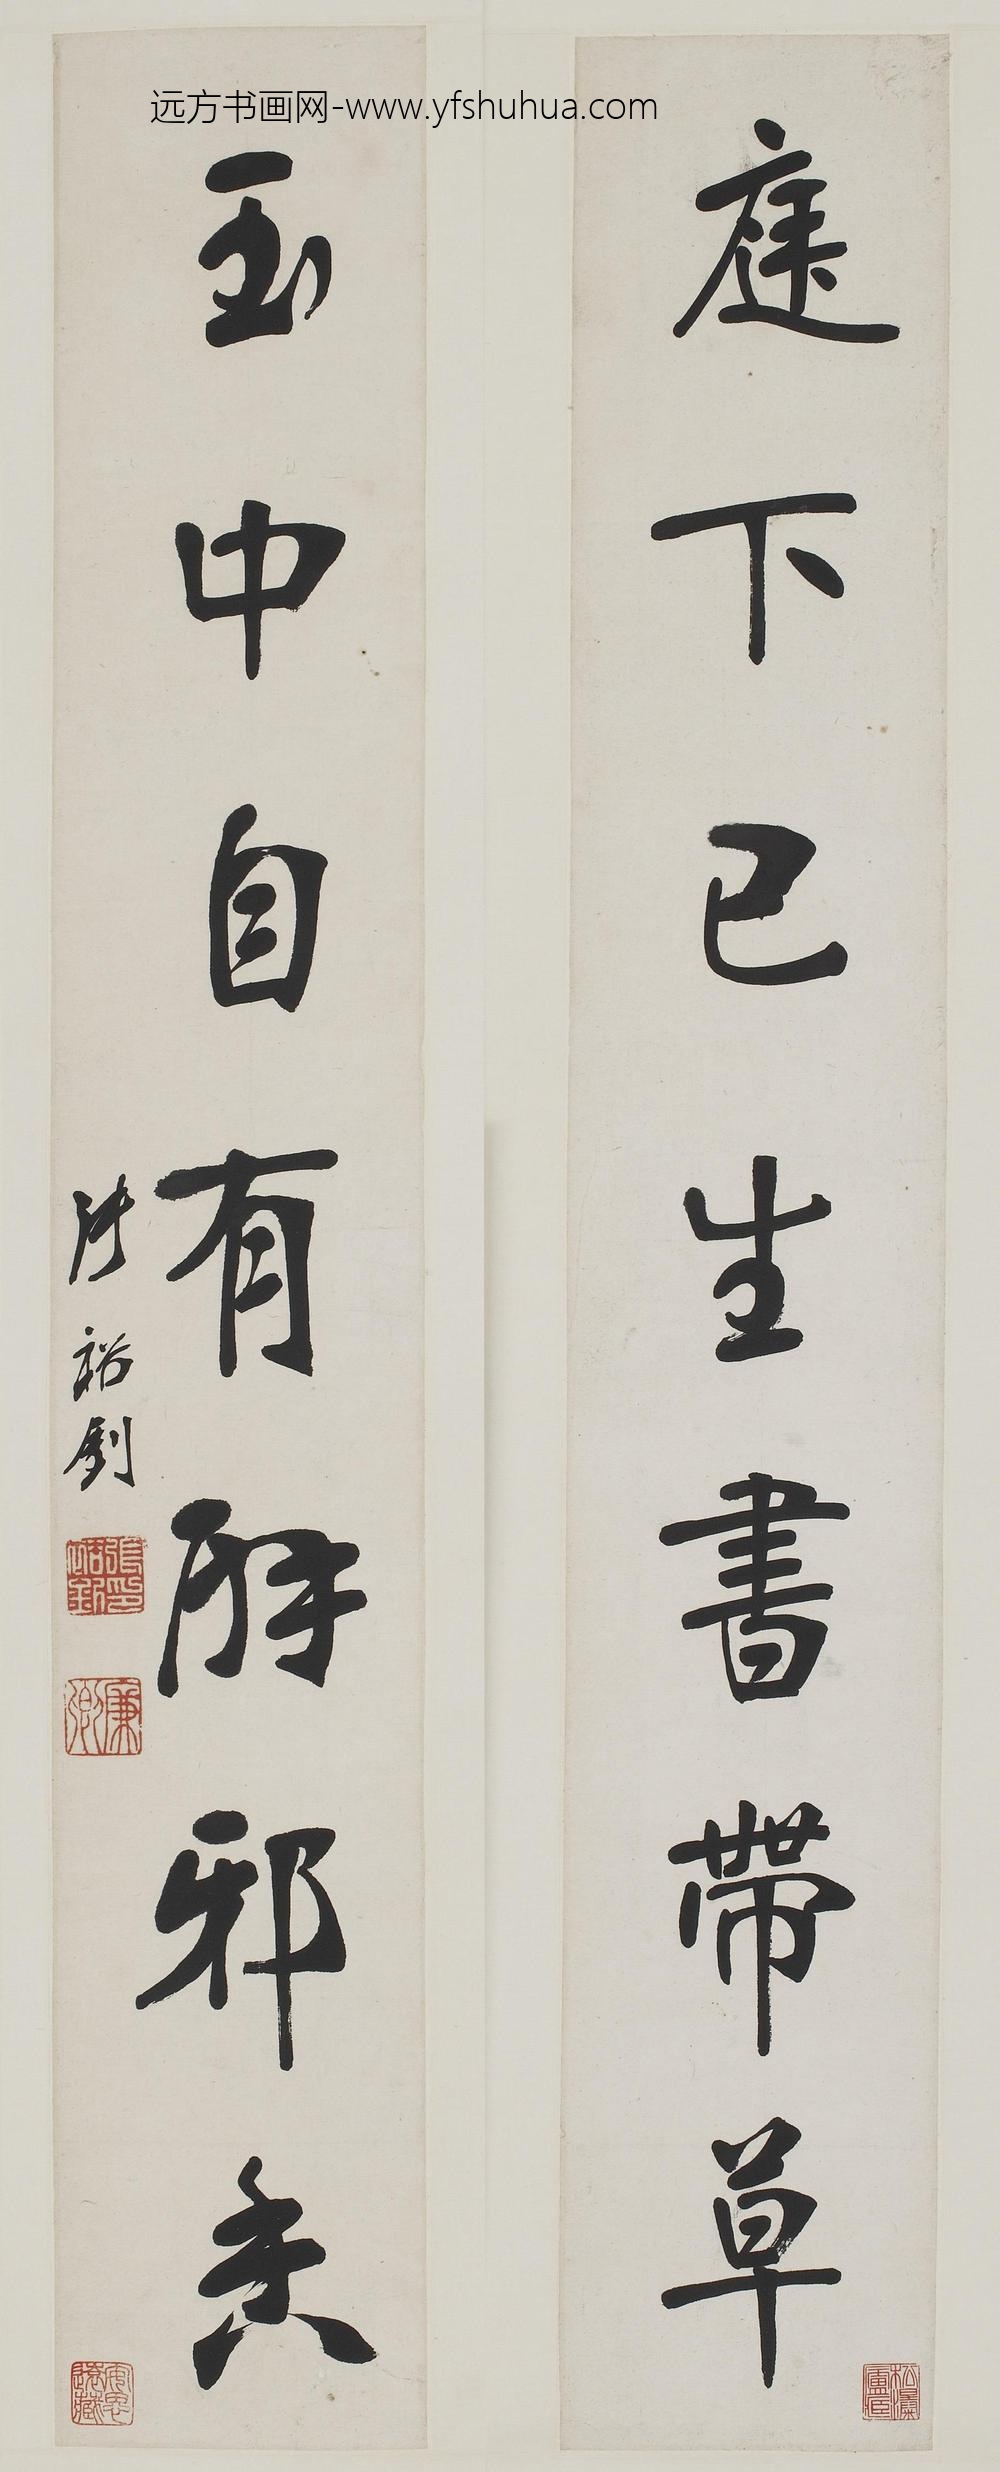 远方书画网-www.yfshuhua.com
庭下已生書帶草
玉中自有辟邪香
張裕釗
張裕釗印
廉卿